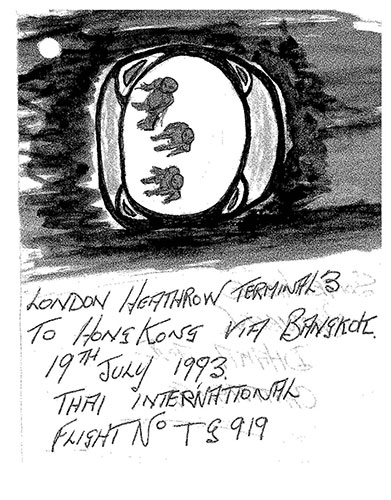 LONDON HEATHROW TERMINAL 3
TO HONG KONG VIA BANGKOK.
19TH JULY 1993
THAI INTERNATIONAL
FLIGHT No TG 919